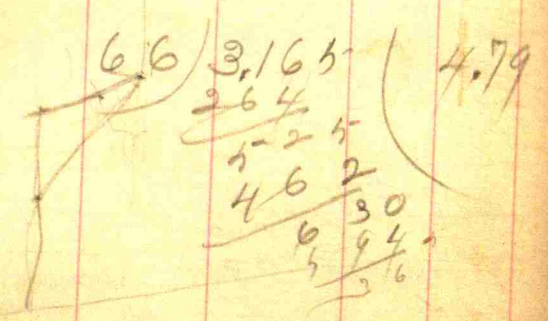 6.6) 3.165 (4.79
264
525
462
630
594
36